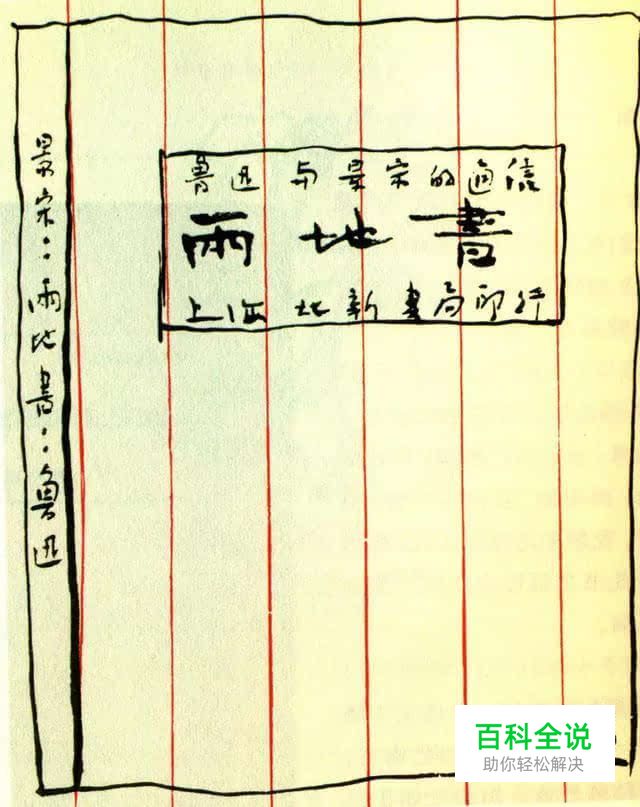 魯迅与景宋的通信
兩地書
上海北新書局印行
景宋：兩地書：魯迅
百科全说
助你轻松解决